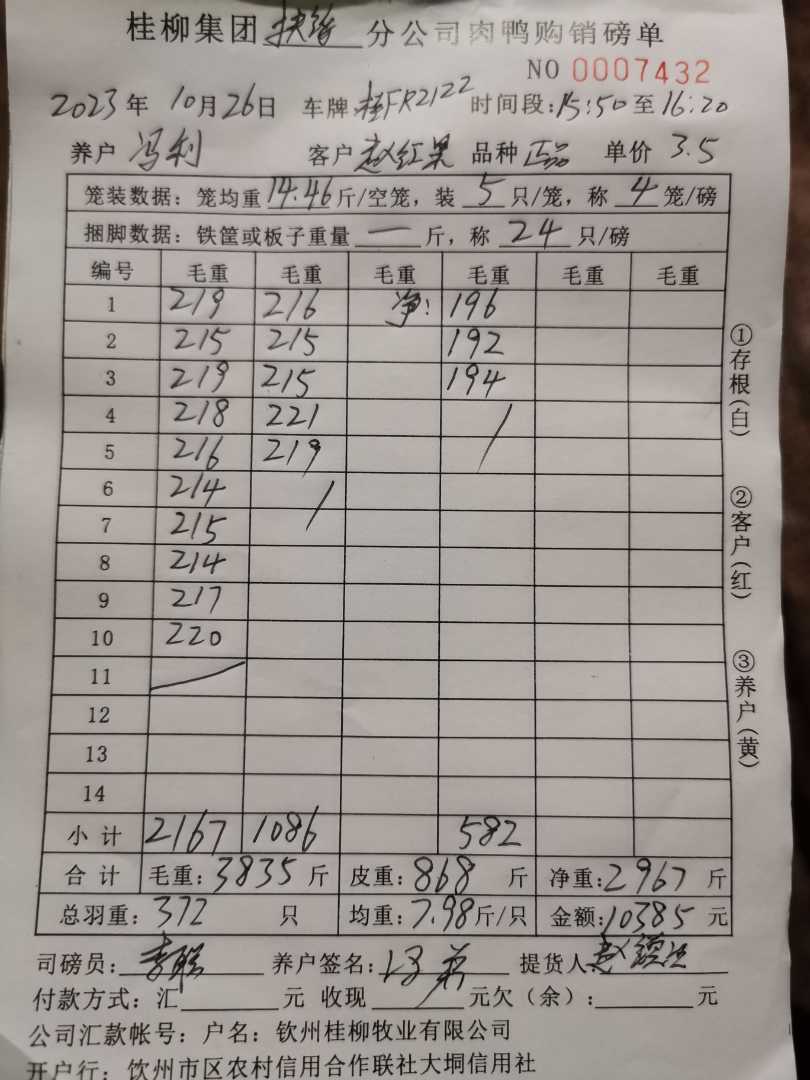 桂柳集团扶绥分公司肉鸭购销磅单
NO 0007432
2023年 10月26日 车牌 桂FR2122 时间段:15:50至16:20
养户 冯利 客户 赵红果 品种 正品 单价 3.5
笼装数据：笼均重 14.46 斤/空笼，装 5 只/笼，称 4 笼/磅
捆脚数据：铁筐或板子重量 一 斤，称 24 只/磅
编号 毛重 毛重 毛重 毛重 毛重 毛重
1 219 216 净: 196
2 215 215 192
3 219 215 194
4 218 221
5 216 219
6 214
7 215
8 214
9 217
10 220
11
12
13
14
小计 2167 1086 582
合计 毛重:3835斤 皮重:868斤 净重:2967斤
总羽重:372 只 均重:7.98斤/只 金额:10385元
司磅员: 养户签名: 提货人
付款方式：汇 元 收现 元欠（余）: 元
公司汇款帐号：户名：钦州桂柳牧业有限公司
开户行：饮州市区农村信用合作联社大垌信用社
①存根(白)
②客户(红)
③养户(黄)